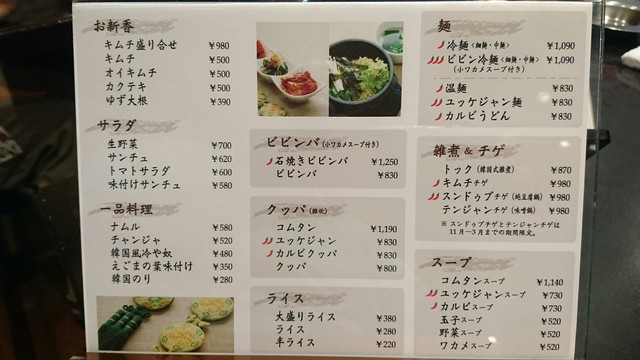 お新香
キムチ盛り合せ ￥980
キムチ ￥500
オイキムチ ￥500
カクテキ ￥500
ゆず大根 ￥390
サラダ
生野菜 ￥700
サンチュ ￥620
トマトサラダ ￥600
味付けサンチュ ￥580
一品料理
ナムル ￥580
チャンジャ ￥520
韓国風冷や奴 ￥480
えごまの葉味付け ￥350
韓国のり ￥280
ビビンバ(小ワカメスープ付き)
石焼きビビンバ ￥1,250
ビビンバ ￥830
クッパ(雑炊)
コムタン ￥1,190
ユッケジャン ￥830
カルビクッパ ￥830
クッパ ￥800
ライス
大盛りライス ￥380
ライス ￥280
半ライス ￥220
麺
冷麺<細麺・中麺> ￥1,090
ビビン冷麺<細麺・中麺> ￥1,090
(小ワカメスープ付き)
温麺 ￥830
ユッケジャン麺 ￥830
カルビうどん ￥830
雑煮 & チゲ
トック(韓国式雑煮) ￥870
キムチチゲ ￥980
スンドゥブチゲ(純豆腐鍋) ￥980
テンジャンチゲ(味噌鍋) ￥980
※ スンドゥブチゲとテンジャンチゲは
11月〜3月までの期間限定。
スープ
コムタンスープ ￥1,140
ユッケジャンスープ ￥730
カルビスープ ￥730
玉子スープ ￥520
野菜スープ ￥520
ワカメスープ ￥520